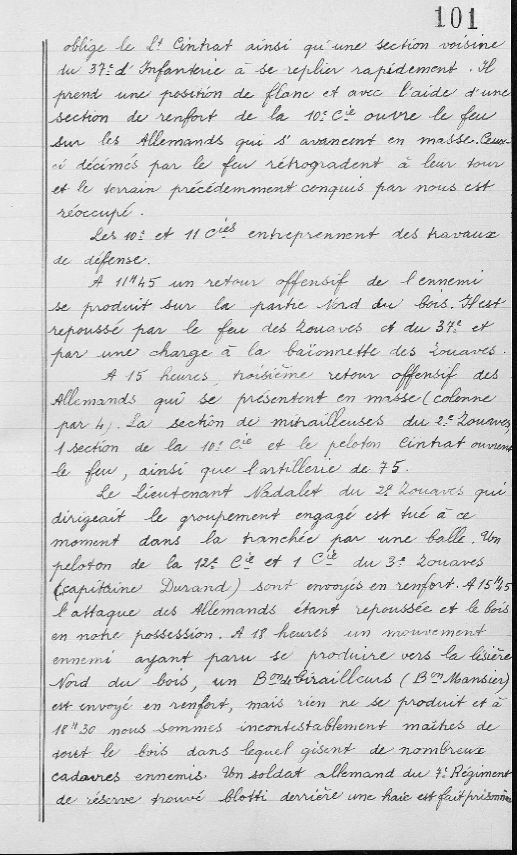 101
oblige le Lt Cintrat ainsi qu'une section voisine
du 37e d'Infanterie à se replier rapidement. Il
prend une position de flanc et avec l'aide d'une
section de renfort de la 10e Cie ouvre le feu
sur les Allemands qui s'avancent en masse. Ceux-
ci décimés par le feu rétrogradent à leur tour
et le terrain précédemment conquis par nous est
réoccupé.
Les 10e et 11 Cies entreprennent des travaux
de défense.
A 11H45 un retour offensif de l'ennemi
se produit sur la partie Nord du bois. Il est
repoussé par le feu des Zouaves et du 37e et
par une charge à la baïonnette des Zouaves.
A 15 heures, troisième retour offensif des
Allemands qui se présentent en masse (colonne
par 4). La section de mitrailleuses du 2e Zouaves,
1 section de la 10e Cie et le peloton Cintrat ouvrent
le feu, ainsi que l'artillerie de 75.
Le Lieutenant Nadalet du 2e Zouaves qui
dirigeait le groupement engagé est tué à ce
moment dans la tranchée par une balle. Un
peloton de la 12e Cie et 1 Cie du 3e Zouaves
(capitaine Durand) sont envoyés en renfort. A 15H45
l'attaque des Allemands étant repoussée et le bois
en notre possession. A 18 heures un mouvement
ennemi ayant paru se produire vers la lisière
Nord du bois, un Bon de tirailleurs (Bon Mansier)
est envoyé en renfort, mais rien ne se produit et à
18H30 nous sommes incontestablement maîtres de
tout le bois dans lequel gisent de nombreux
cadavres ennemis. Un soldat allemand du 7e Régiment
de réserve trouvé blotti derrière une haie est fait prisonnier